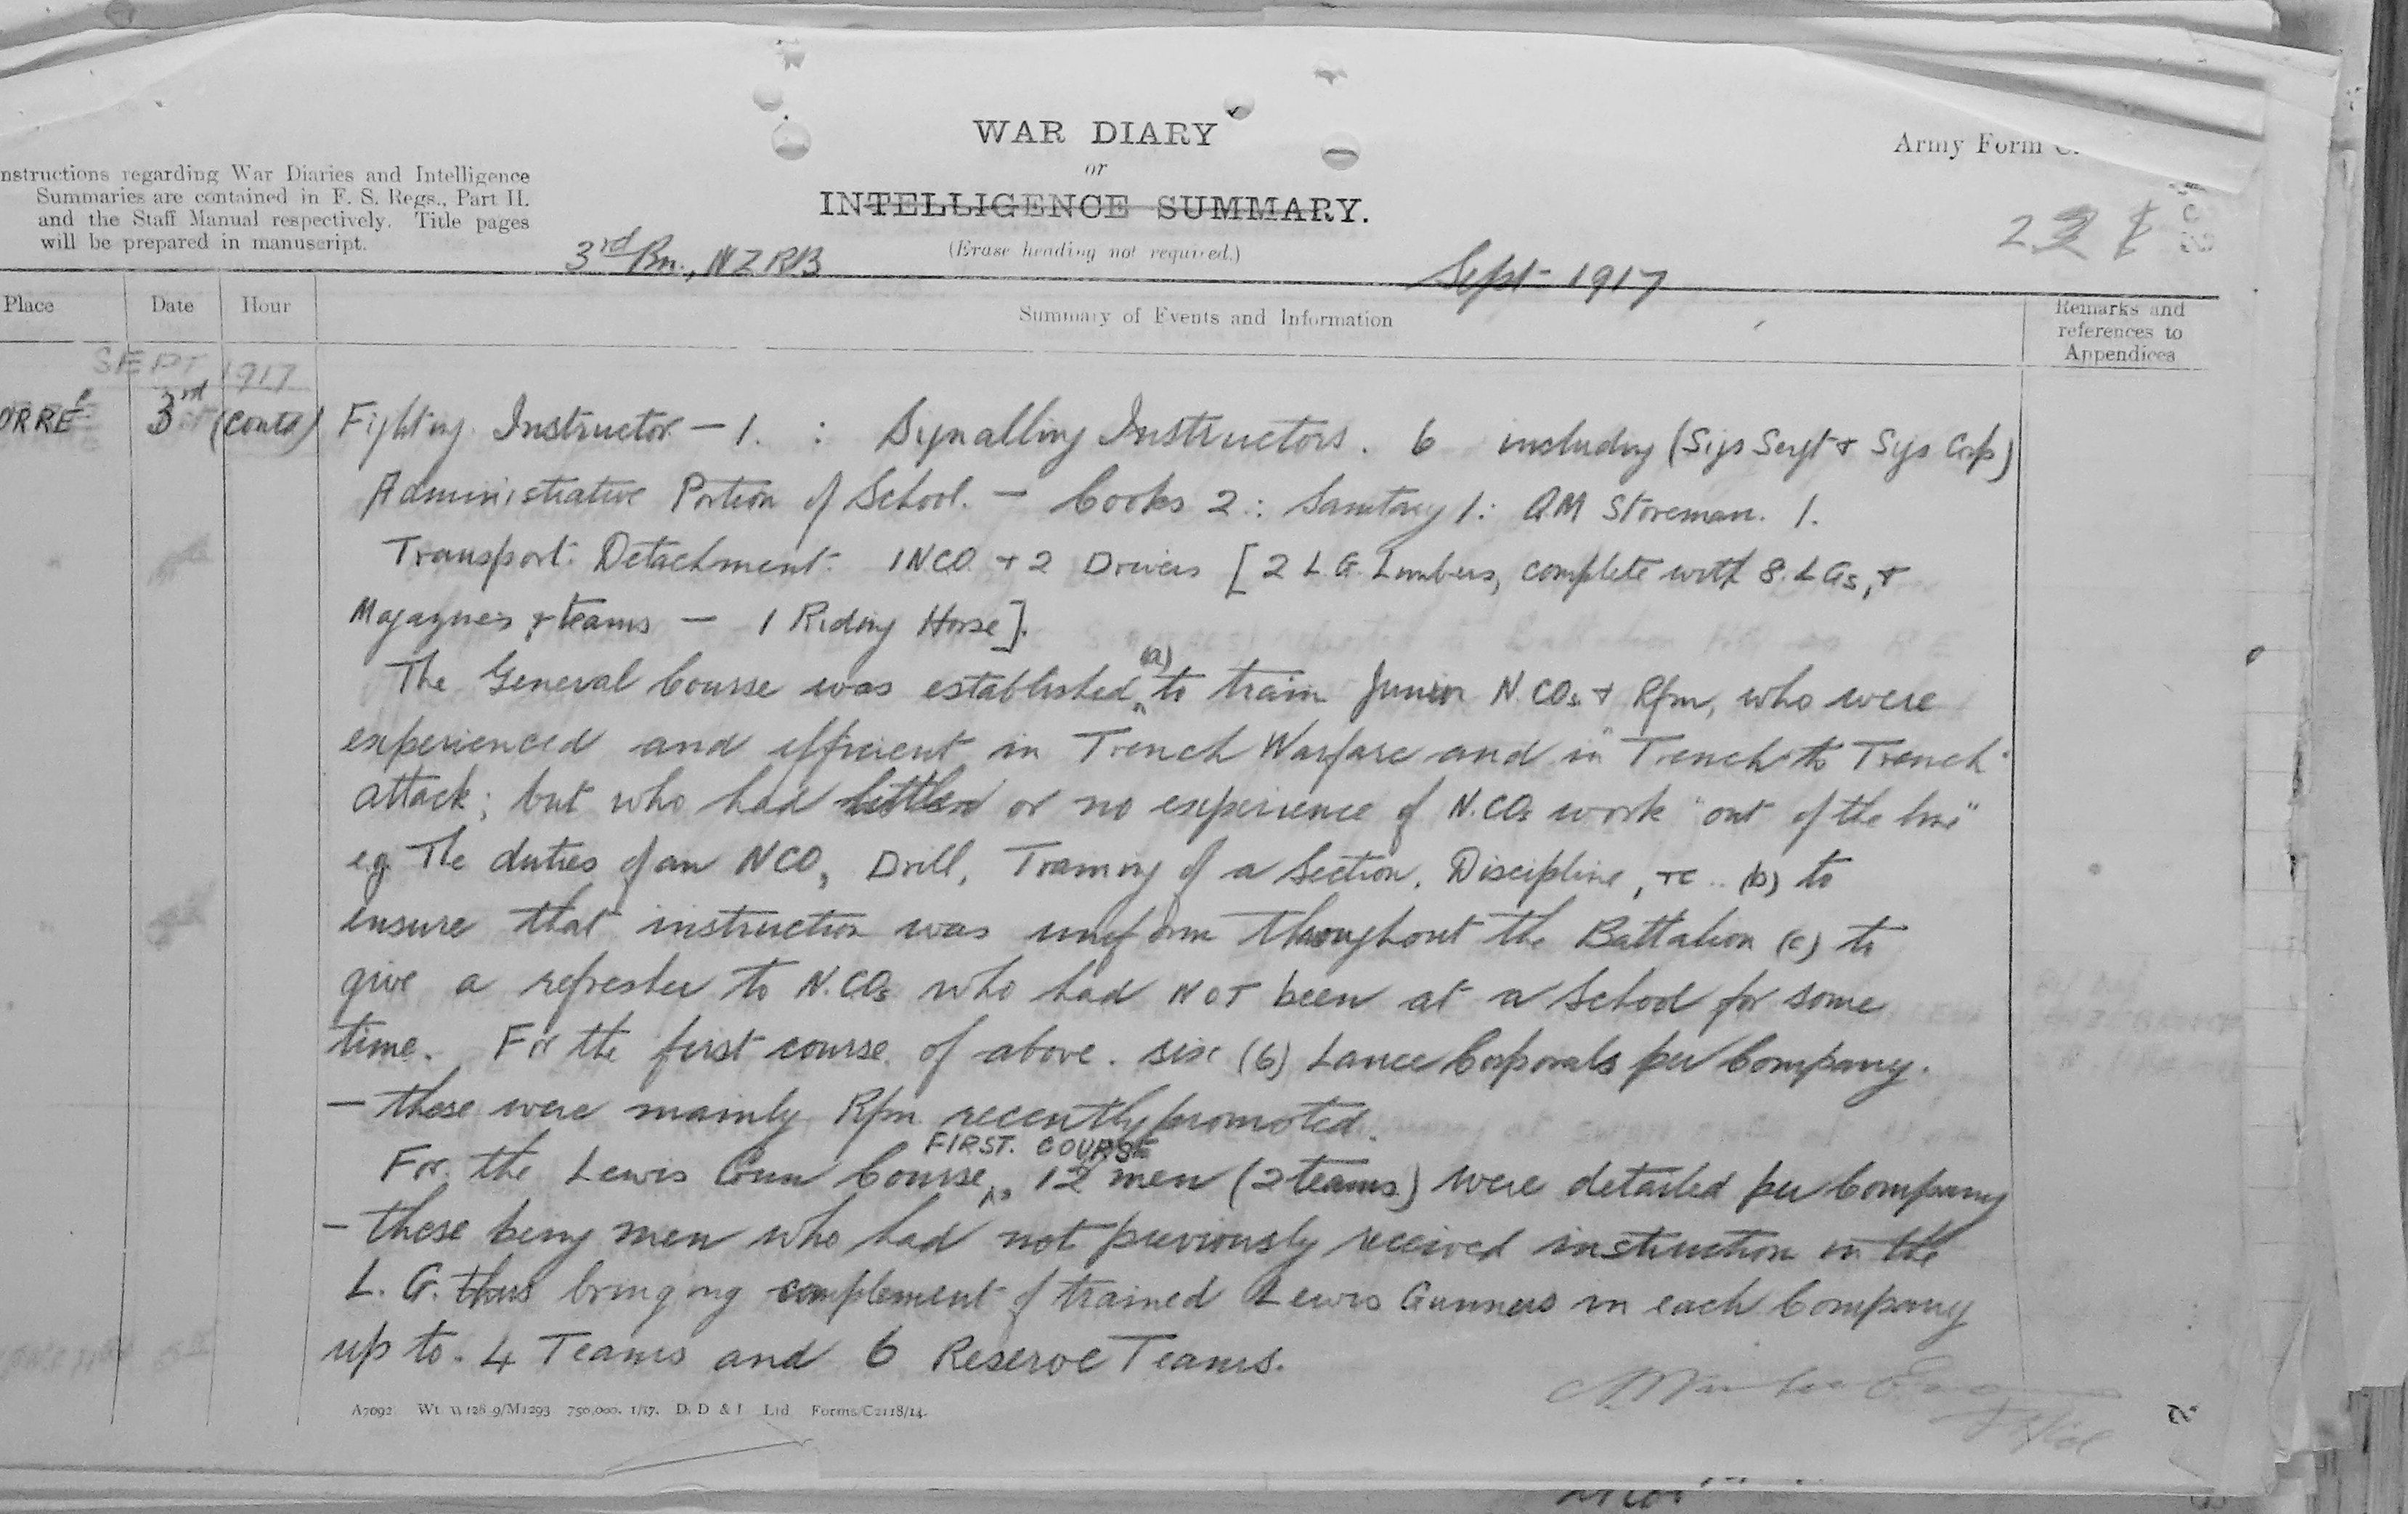 WAR DIARY
or
INTELLIGENCE SUMMARY.
(Erase heading not required.)
Army Form
nstructions regarding War Diaries and Intelligence
Summaries are contained in F. S. Regs., Part II.
and the Staff Manual respectively. Title pages
will be prepared in manuscript.
3rd Bn., NZRB
Sept 1917
Place
Date
Hour
Summary of Events and Information
Remarks and
references to
Appendices
SEPT 1917
ORRE
3rd (Contd)
Fighting Instructor - 1. : Signalling Instructors. 6 including (Sigs Sergt + Sigs Corp)
Administrative Portion of School. - Cooks 2 : Sanitary 1 : QM Storeman. 1.
Transport Detachment. 1 NCO + 2 Drivers [2 L.G. Limbers, complete with 8. LGs, +
Magazines + teams - 1 Riding Horse].
The General Course was established (a) to train junior N.COs + Rfm, who were
experienced and efficient in Trench Warfare and in "Trench to Trench"
attack; but who had little or no experience of N.COs work "out of the line"
e.g. The duties of an NCO, Drill, Training of a Section, Discipline, +c .. (b) to
ensure that instruction was uniform throughout the Battalion (c) to
give a refresher to N.COs who had NOT been at a School for some
time. For the first course of above. six (6) Lance Corporals per Company.
- these were mainly Rfm recently promoted.
FIRST. COURSE
For the Lewis Gun Course, 12 men (2 teams) were detailed per Company
- these being men who had not previously received instruction in the
L. G. thus bringing complement of trained Lewis Gunners in each Company
up to. 4 Teams and 6 Reserve Teams.
A7092 Wt. W128 9/M1293 750,000. 1/17. D. D & L Ltd Forms/C2118/14.